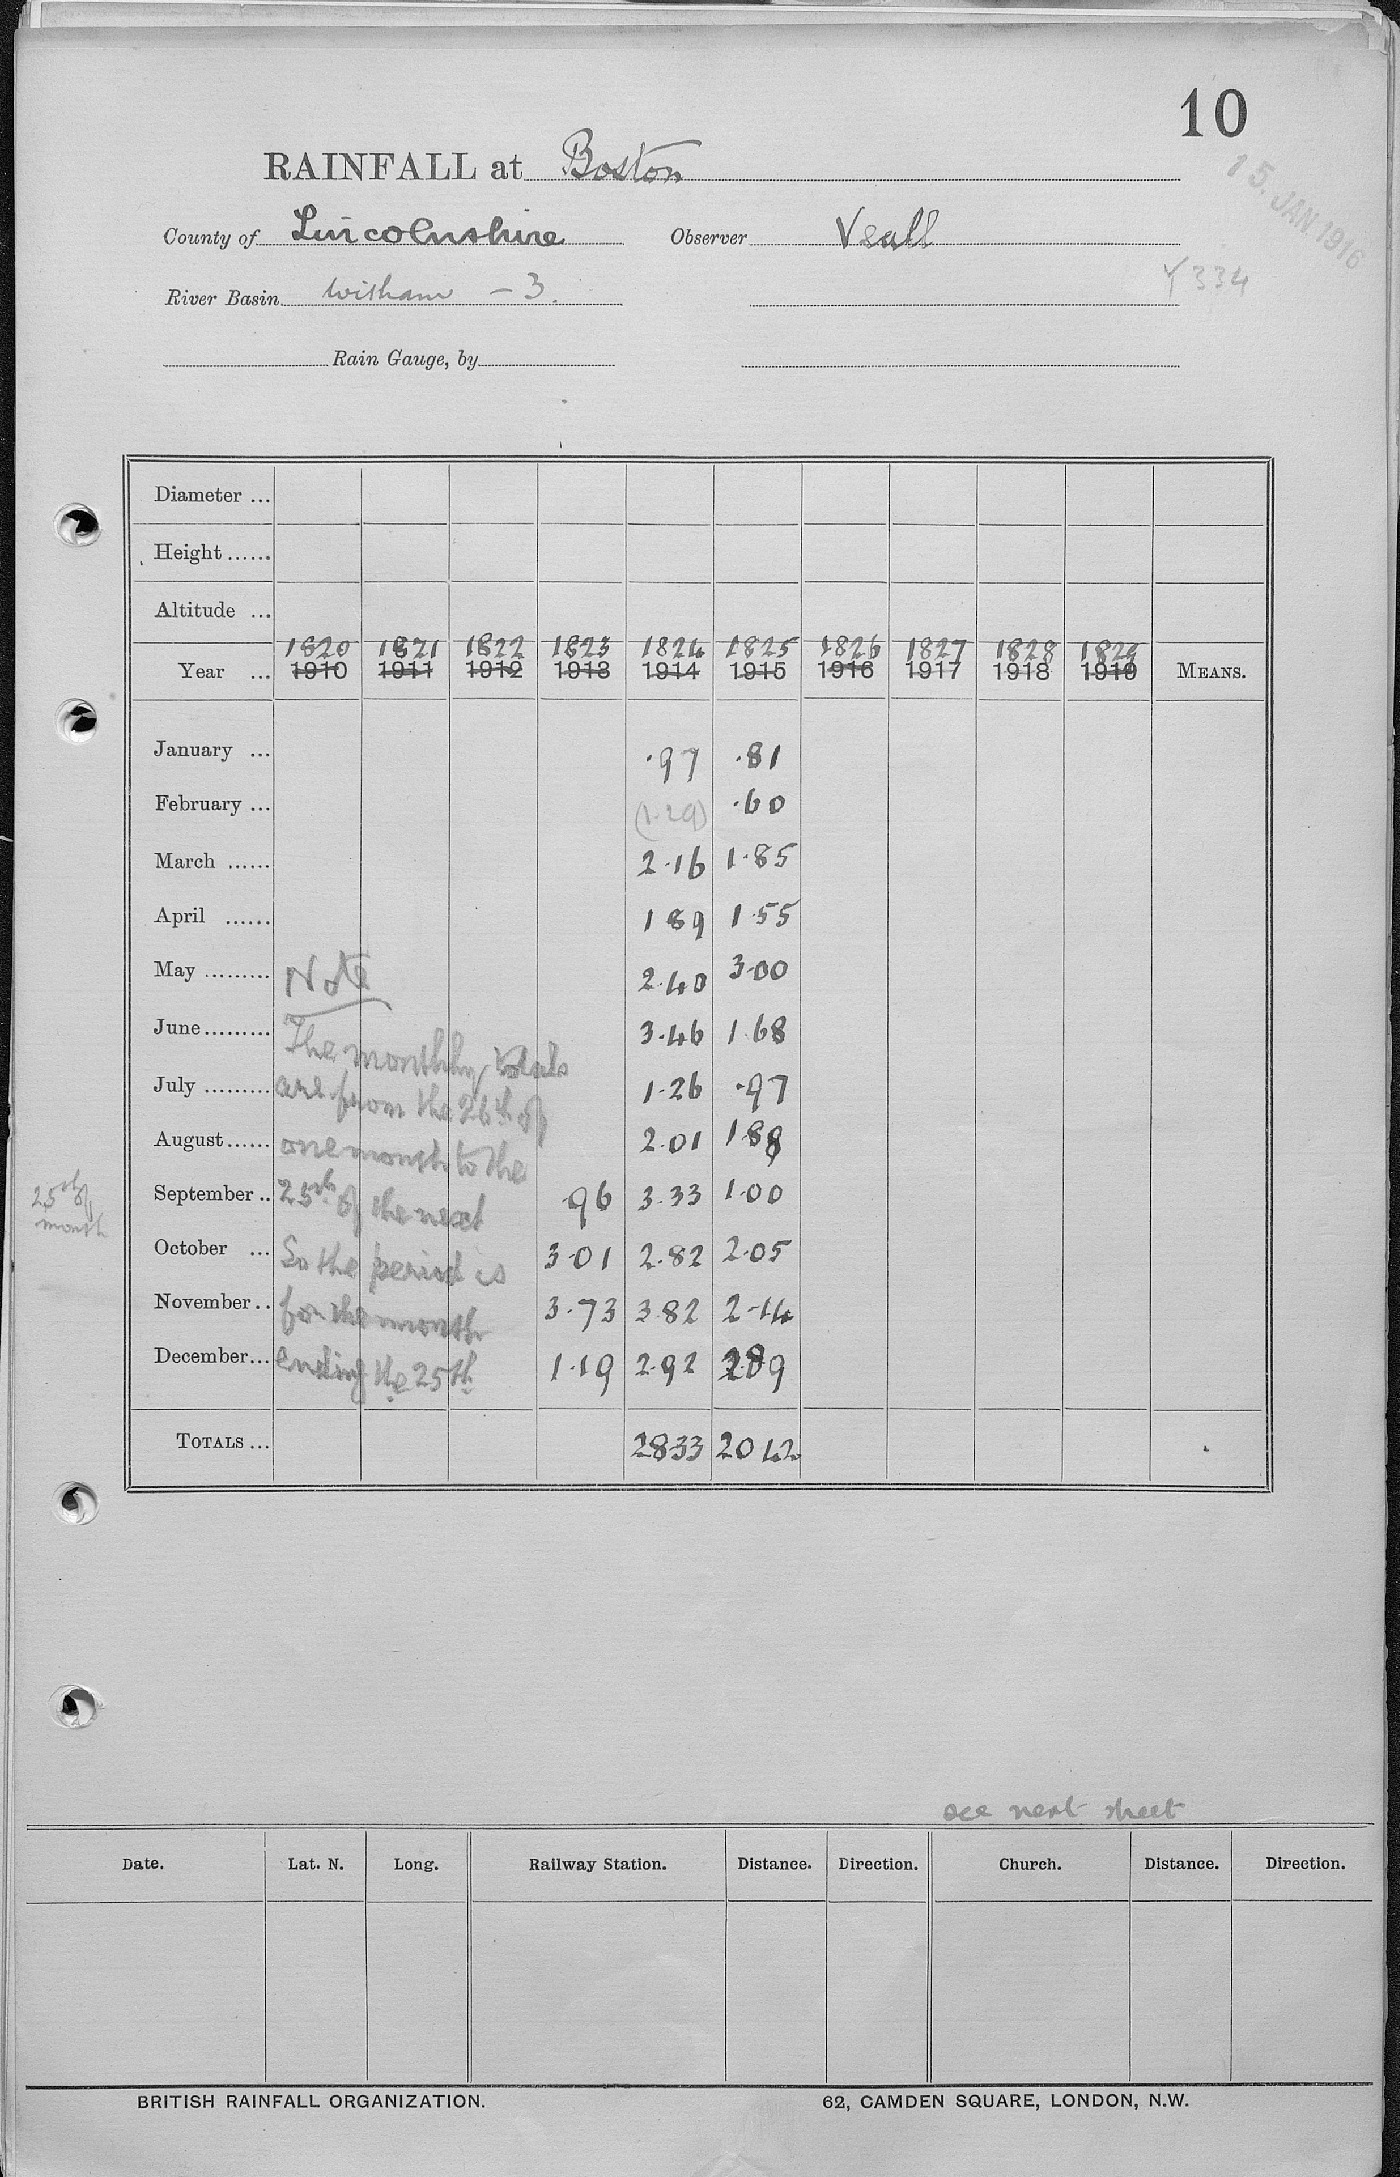 10
RAINFALL at Boston
15. JAN 1916
County of Lincolnshire Observer Veall
Y 334
River Basin Witham - 3.
Rain Gauge, by
Diameter ...
Height ......
Altitude ...
1820 1821 1822 1823 1824 1825 1826 1827 1828 1829
Year ... 1910 1911 1912 1913 1914 1915 1916 1917 1918 1919 MEANS.
January ... .97 .81
February ... (1.29) .60
March ...... 2.16 1.85
April ...... 1 89 1.55
May ......... 2.40 3.00
June ......... 3.46 1.68
July ......... 1.26 .97
August ...... 2.01 1.88
September .. .96 3.33 1.00
October ... 3.01 2.82 2.05
November .. 3.73 3.82 2.14
December ... 1.19 2.92 2.89
TOTALS ... 28.33 20 42
Note
The monthly totals
are from the 26th of
one month to the
25th of the next
So the period is
for the month
ending the 25th
25th of
month
see next sheet
Date. Lat. N. Long. Railway Station. Distance. Direction. Church. Distance. Direction.
BRITISH RAINFALL ORGANIZATION. 62, CAMDEN SQUARE, LONDON, N.W.